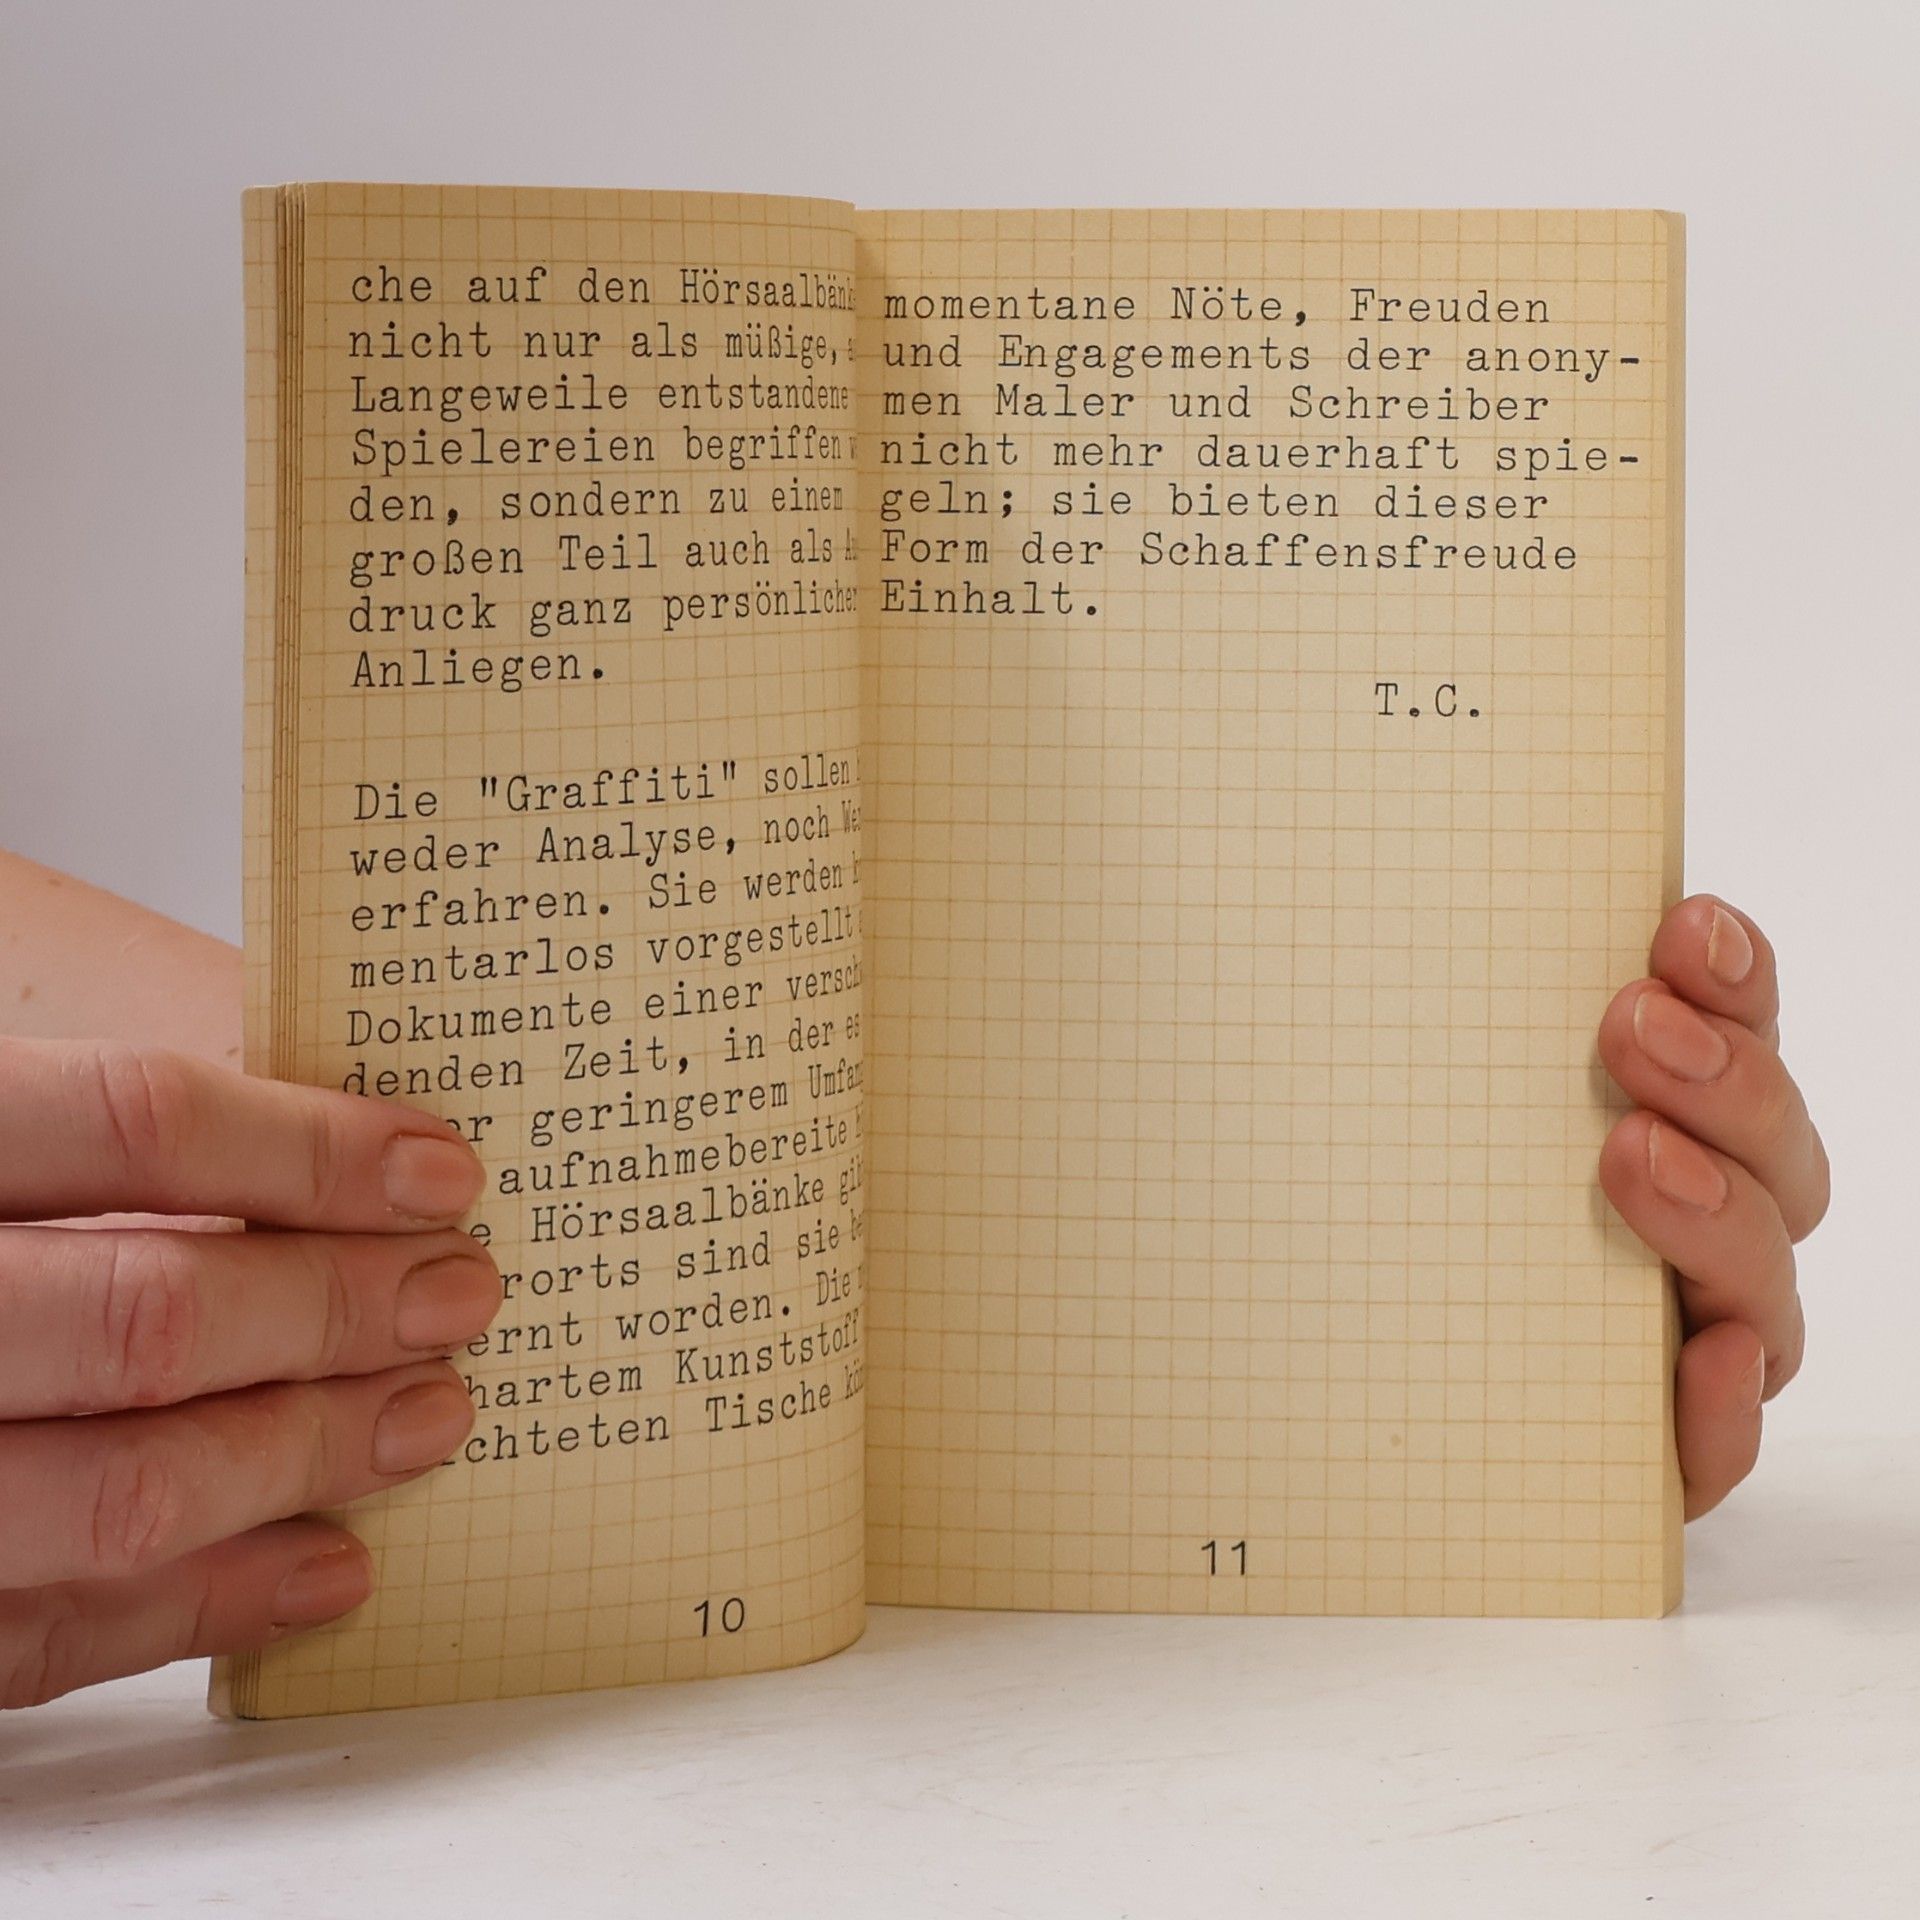 che auf den Hörsaalbänk
nicht nur als müßige,
Langeweile entstandene
Spielereien begriffen
den, sondern zu einem
großen Teil auch als
druck ganz persönlicher
Anliegen.
Die "Graffiti" sollen
weder Analyse, noch
erfahren. Sie werden
mentarlos vorgestellt
Dokumente einer
denden Zeit, in der es
geringerem
aufnahmebereite
Hörsaalbänke
rorts sind sie
ernt worden. Die
hartem Kunststoff
chteten Tische
10
momentane Nöte, Freuden
und Engagements der anony-
men Maler und Schreiber
nicht mehr dauerhaft spie-
geln; sie bieten dieser
Form der Schaffensfreude
Einhalt.
T.C.
11